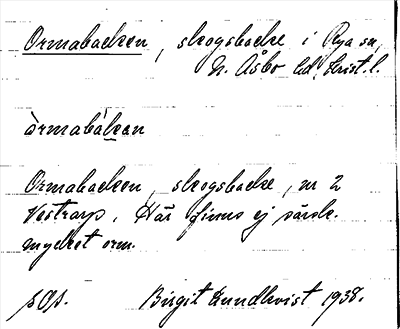 Ormabacken, skogsbacke i Rya sn,
N. Åsbo hd, Krist. l.
òrmabàkan
Ormabacken, skogsbacke, nr 2
Vestraryp. Här finns ej särsk.
mycket orm.
Birgit Lundkvist 1938.